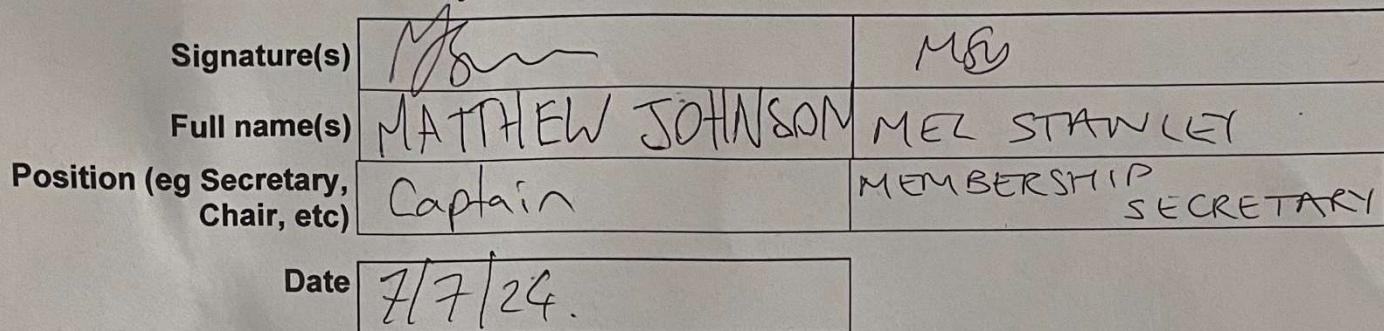 Signature(s)
Full name(s) MATTHEW JOHNSON MEL STANLEY
Position (eg Secretary, Captain MEMBERSHIP
Chair, etc) SECRETARY
Date 7/7/24.